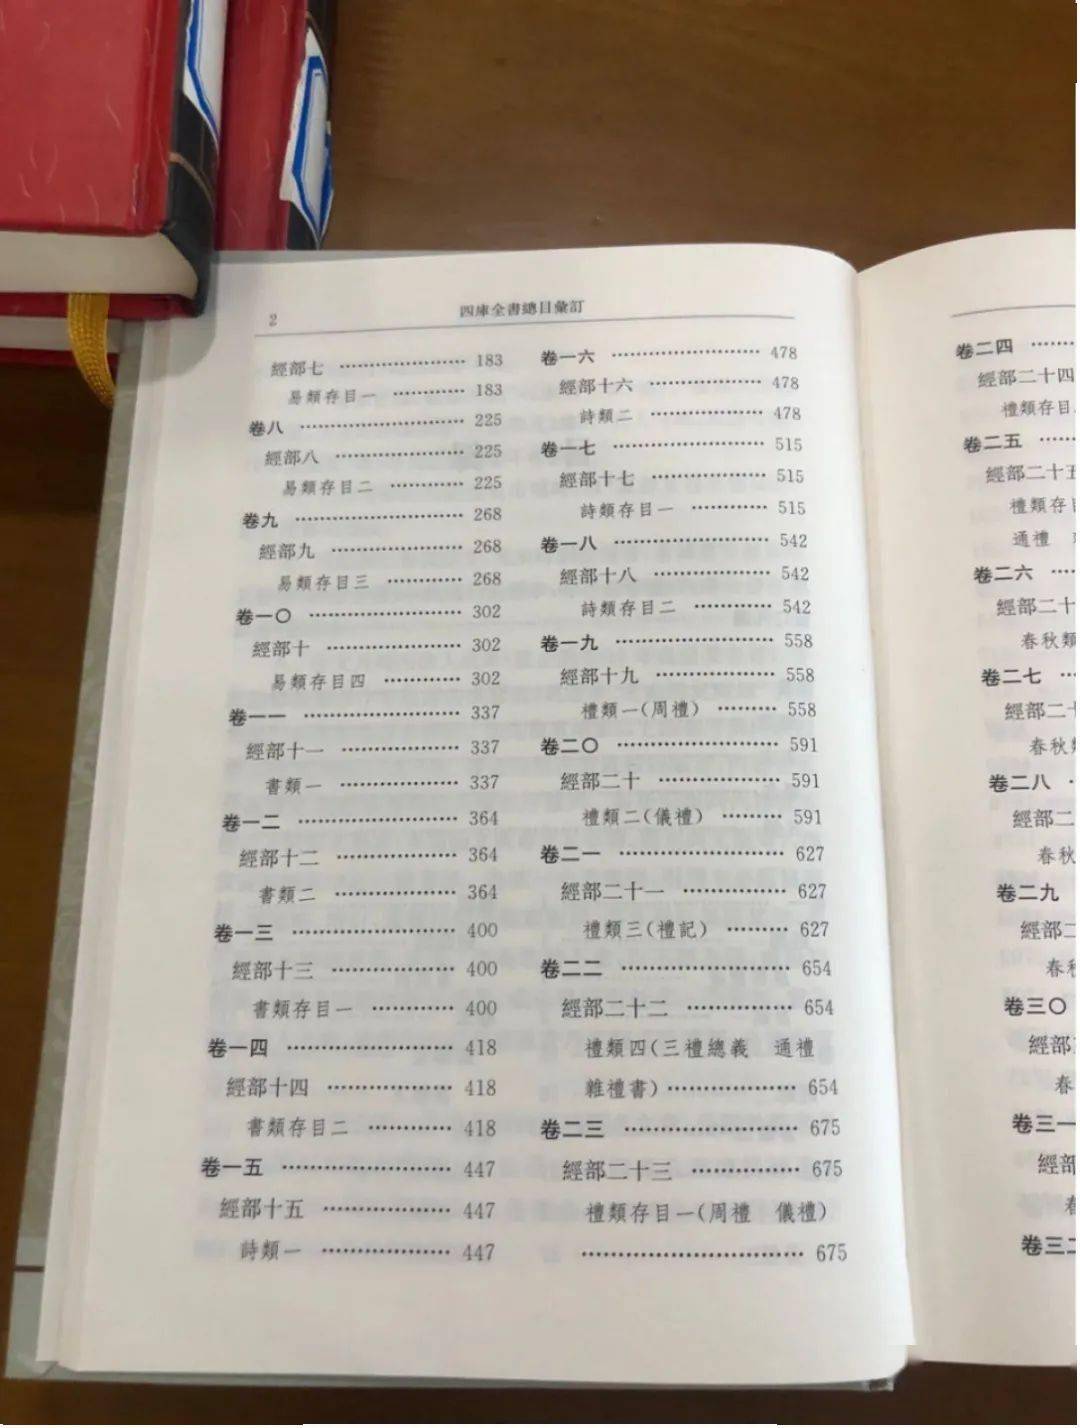 2
四庫全書總目彙訂
經部七 ……………… 183
易類存目一 ………… 183
卷八 ……………………… 225
經部八 ………………… 225
易類存目二 ………… 225
卷九 ……………………… 268
經部九 ………………… 268
易類存目三 ………… 268
卷一〇 …………………… 302
經部十 ………………… 302
易類存目四 ………… 302
卷一一 …………………… 337
經部十一 ……………… 337
書類一 ………………… 337
卷一二 …………………… 364
經部十二 ……………… 364
書類二 ………………… 364
卷一三 …………………… 400
經部十三 ……………… 400
書類存目一 ………… 400
卷一四 …………………… 418
經部十四 ……………… 418
書類存目二 ………… 418
卷一五 …………………… 447
經部十五 ……………… 447
詩類一 ………………… 447
卷一六 …………………… 478
經部十六 ……………… 478
詩類二 ……………… 478
卷一七 …………………… 515
經部十七 ……………… 515
詩類存目一 ………… 515
卷一八 …………………… 542
經部十八 ……………… 542
詩類存目二 ………… 542
卷一九 …………………… 558
經部十九 ……………… 558
禮類一(周禮) ……… 558
卷二〇 …………………… 591
經部二十 ……………… 591
禮類二(儀禮) ……… 591
卷二一 …………………… 627
經部二十一 …………… 627
禮類三(禮記) ……… 627
卷二二 …………………… 654
經部二十二 …………… 654
禮類四(三禮總義　通禮
雜禮書) ……………… 654
卷二三 …………………… 675
經部二十三 …………… 675
禮類存目一(周禮　儀禮)
…………………………… 675
卷二四 ……
經部二十四
禮類存目
卷二五 ……
經部二十五
禮類存目
通禮
卷二六 ……
經部二十
春秋類
卷二七 ……
經部二十
春秋類
卷二八
經部二
春秋
卷二九
經部二
春秋
卷三〇
經部
春
卷三一
經部
春
卷三二